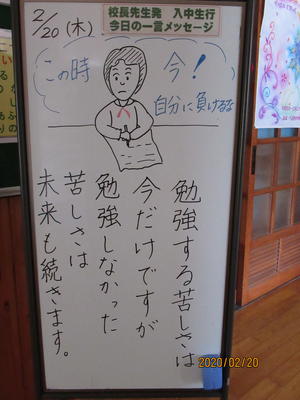 2/20(木)
校長先生発 入中生行
今日の一言メッセージ
この時
今!
自分に負けるな
勉強する苦しさは
今だけですが
勉強しなかった
苦しさは
未来も続きます。
2020/02/20